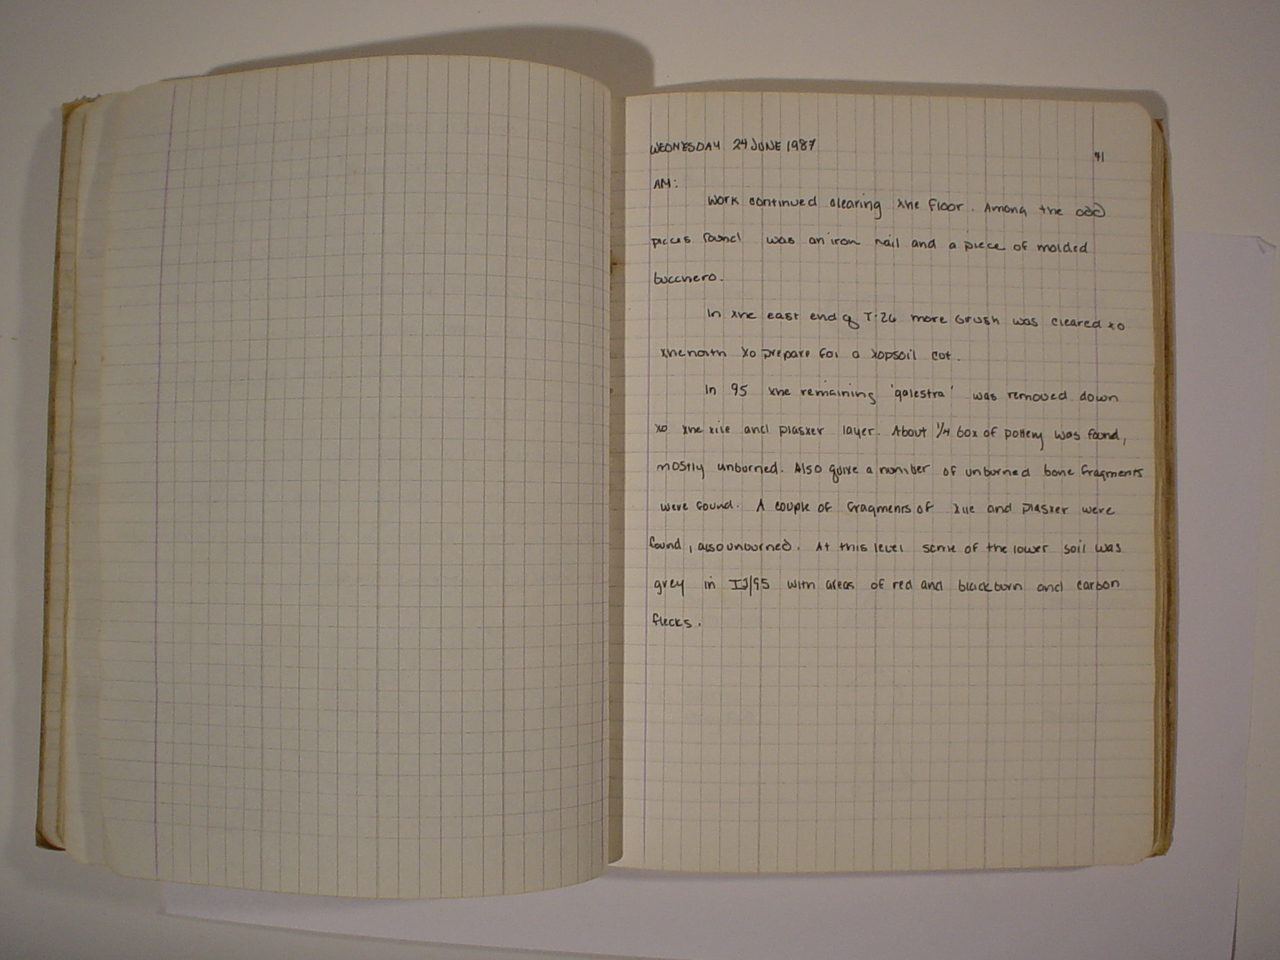 WEDNESDAY 24 JUNE 1987
71
AM:
Work continued clearing the floor. Among the odd
pieces found was an iron nail and a piece of molded
bucchero.
In the east end of T:26 more brush was cleared to
the north to prepare for a topsoil cut.
In 95 the remaining 'galestra' was removed down
to the tile and plaster layer. About 1/4 box of pottery was found,
mostly unburned. Also quite a number of unburned bone fragments
were found. A couple of fragments of tile and plaster were
found, also unburned. At this level some of the lower soil was
grey in IJ/95 with areas of red and black burn and carbon
flecks.